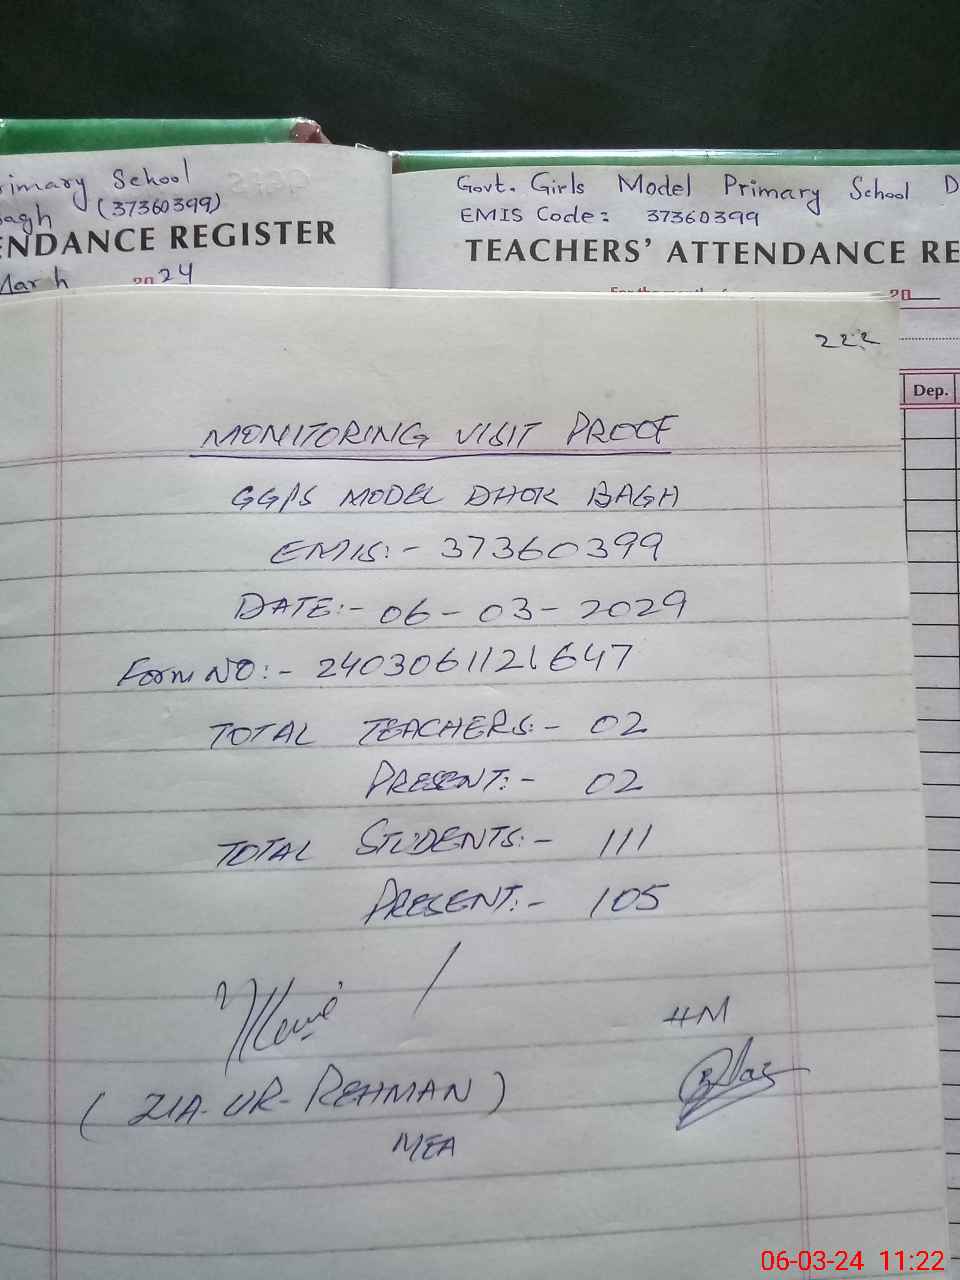 rimary School
Bagh (37360399)
ENDANCE REGISTER
Marh 2024
Govt. Girls Model Primary School D
EMIS Code: 37360399
TEACHERS' ATTENDANCE RE
20
Dep.
222
MONITORING VISIT PROOF
GGPS MODEL DHOK BAGH
EMIS:- 37360399
DATE:- 06-03-2029
Form NO:- 2403061121647
TOTAL TEACHERS:- 02
PRESENT:- 02
TOTAL STUDENTS:- 111
PRESENT:- 105
HM
(ZIA-UR-REHMAN)
MEA
06-03-24 11:22